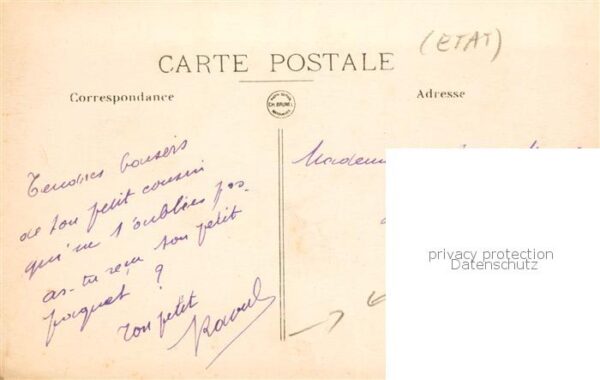 (ETAT)
CARTE POSTALE
Correspondance
CH. BRUNEL
Adresse
Tendres baisers
de ton petit cousin
qui ne t'oublies pas.
as-tu reçu ton petit
paquet ?
ton petit
Raoul
privacy protection
Datenschutz